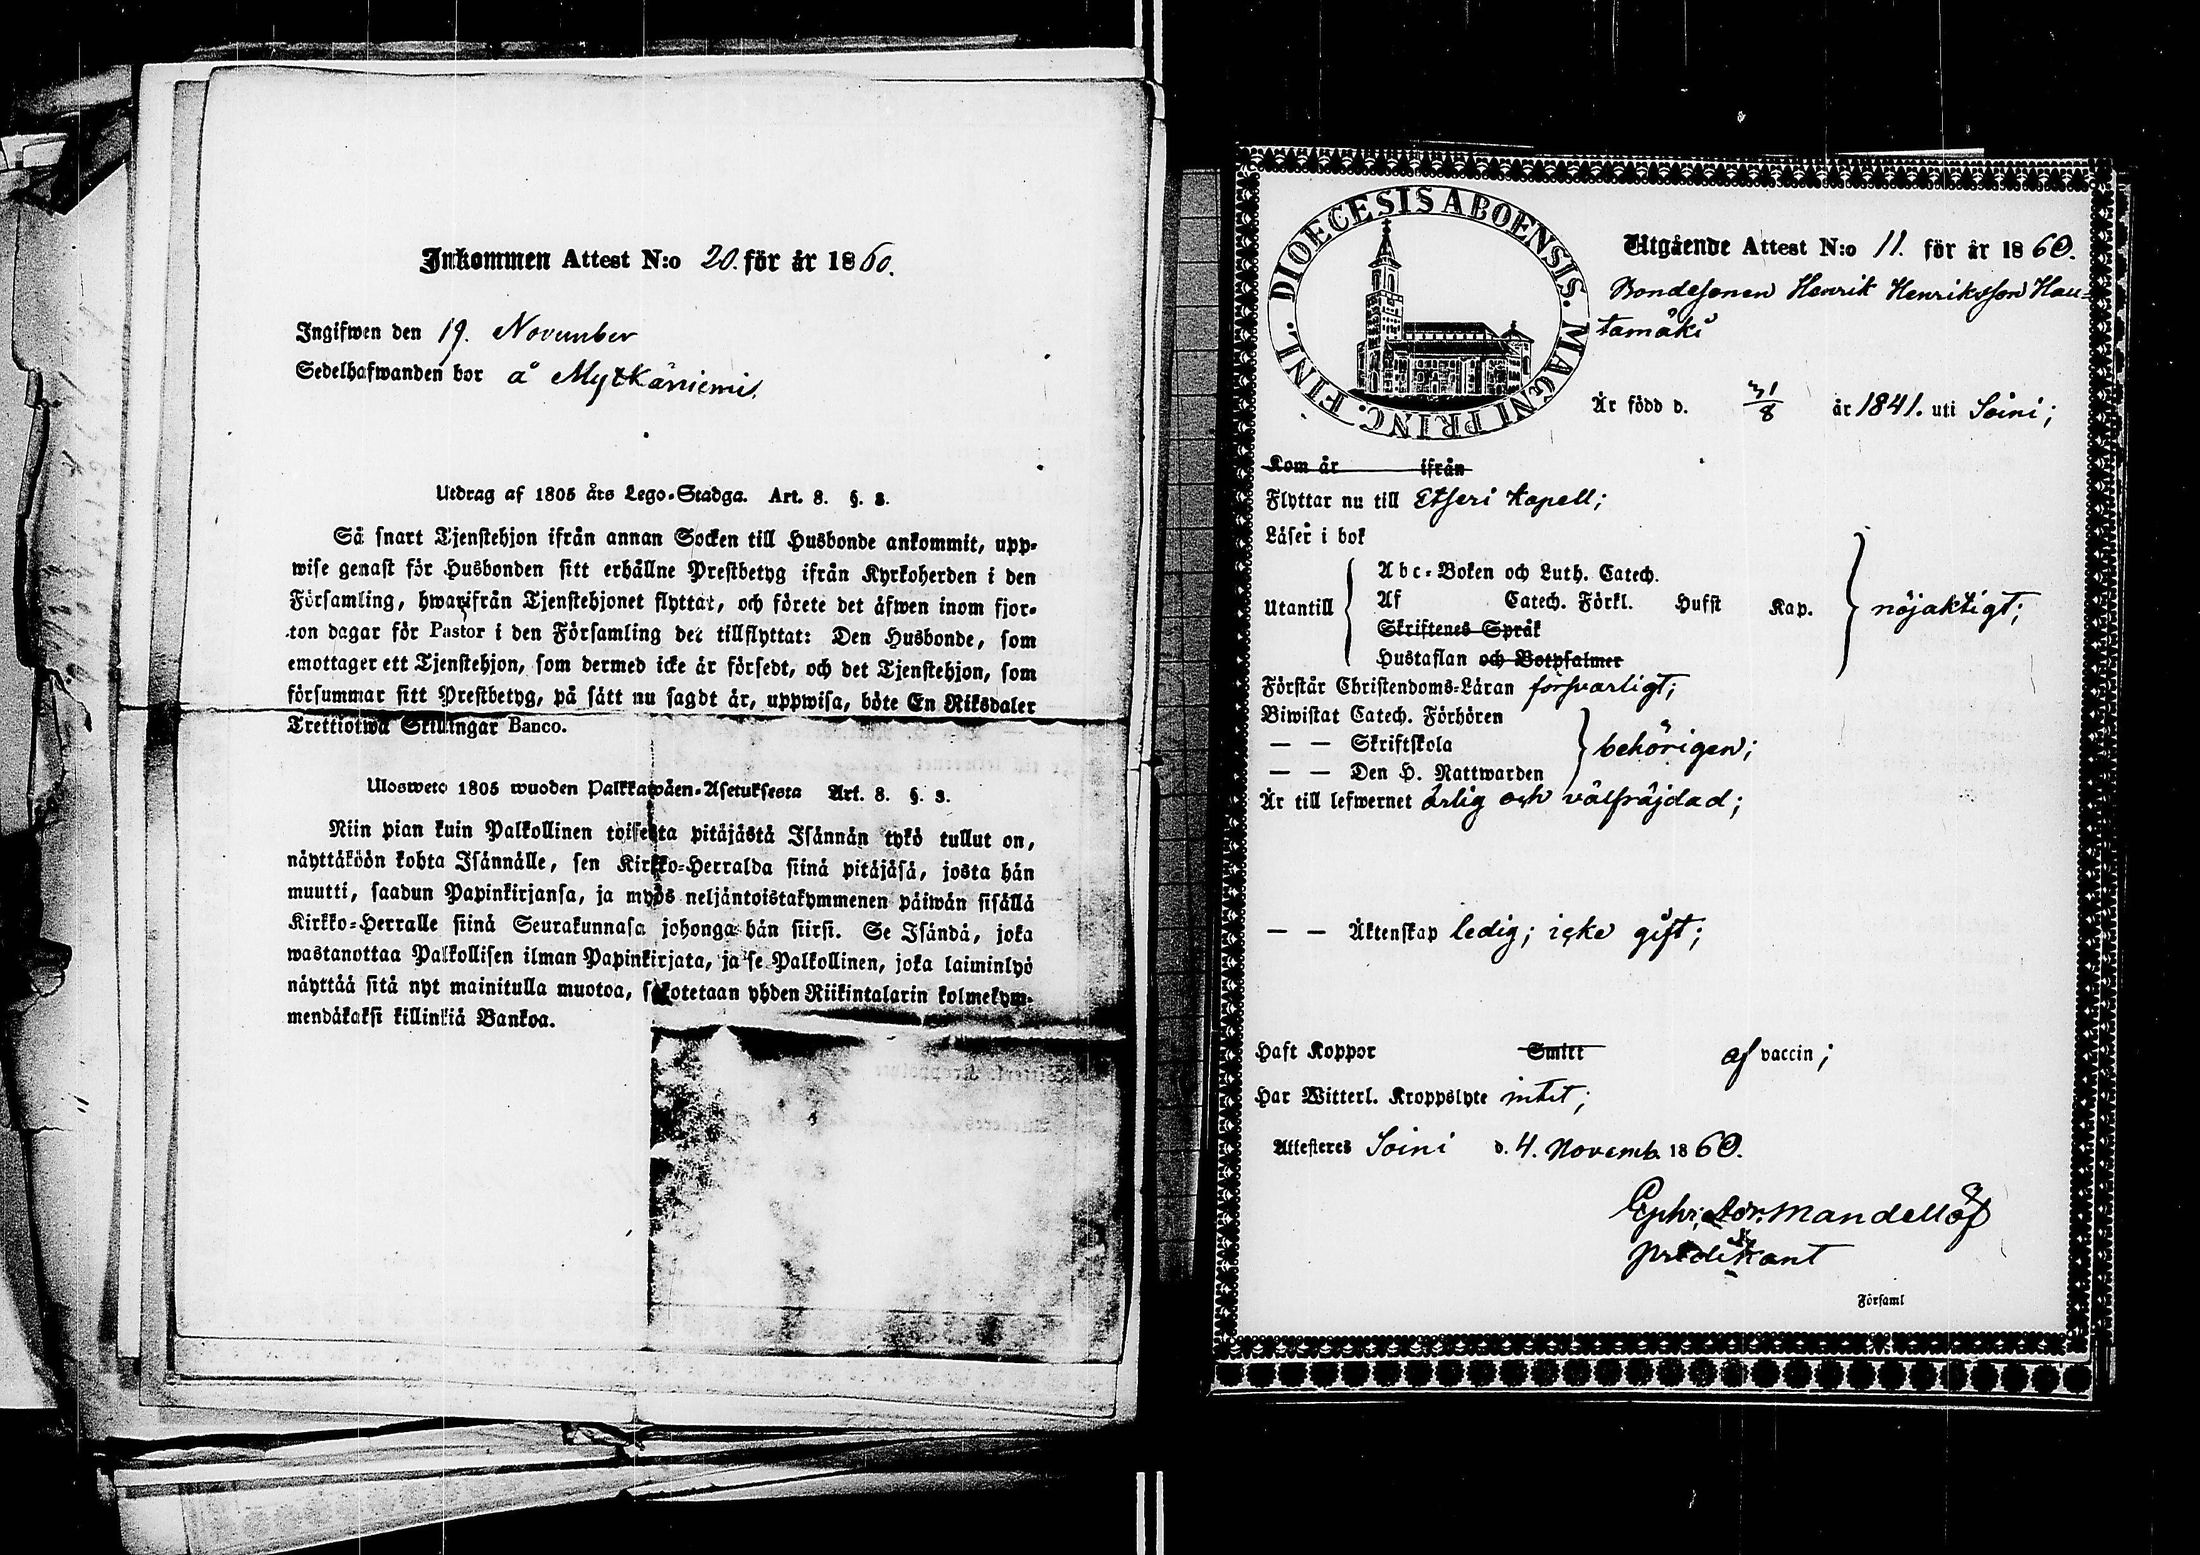 Inkommen Attest N:o 20. för år 1860.
Ingifwen den 19. November
Sedelhafwanden bor å Mytkäniemi.
Utdrag af 1805 års Lego-Stadga. Art. 8. §. 8.
Så snart Tjenstehjon ifrån annan Socken till Husbonde ankommit, upp-
wise genast för Husbonden sitt erhållne Prestbetyg ifrån Kyrkoherden i den
Församling, hwarifrån Tjenstehjonet flyttat, och förete det äfwen inom fjor-
ton dagar för Pastor i den Församling det tillflyttat: Den Husbonde, som
emottager ett Tjenstehjon, som dermed icke är försedt, och det Tjenstehjon, som
försummar sitt Prestbetyg, på sätt nu sagdt är, uppwisa, böte En Riksdaler
Trettiotwå Skillingar Banco.
Ulosweto 1805 wuoden Palkkawäen-Asetuksesta Art. 8. §. 3.
Niin pian kuin Palkollinen toisesta pitäjästä Isännän tykö tullut on,
näyttäköön kohta Isännälle, sen Kirkko-Herralda siinä pitäjäsä, josta hän
muutti, saadun Papinkirjansa, ja myös neljäntoistakymmenen päiwän sisällä
Kirkko-Herralle siinä Seurakunnasa johonga hän siirsi. Se Isändä, joka
wastanottaa Palkollisen ilman Papinkirjata, ja se Palkollinen, joka laiminlyö
näyttää sitä nyt mainitulla muotoa, sakotetaan yhden Riikintalarin kolmekym-
mendäkaksi killinkiä Bankoa.
DIOECESIS ABOENSIS. MAGNI PRINC. FINL.
Utgående Attest N:o 11. för år 1860.
Bondesonen Henrik Henriksson Hau-
tamäki
Är född d. 31/8 år 1841. uti Soini;
Kom år ifrån
Flyttar nu till Etseri Kapell;
Läser i bok
Utantill
Abc-Boken och Luth. Catech.
Af Catech. Förkl. Hufst Kap.
Skriftenes Språk
Hustaflan och Botpsalmer
nöjaktigt;
Förstår Christendoms-Läran försvarligt;
Biwistat Catech. Förhören
— — Skriftskola
— — Den H. Nattwarden
behörigen;
Är till lefwernet ärlig och välfräjdad;
— — Äktenskap ledig; icke gift;
Haft Koppor Smitt af vaccin;
Har Witterl. Kroppslyte intet;
Attesteres Soini d. 4. Novemb. 1860.
Ephr. Adr. Mandellöf
predikant
Församl